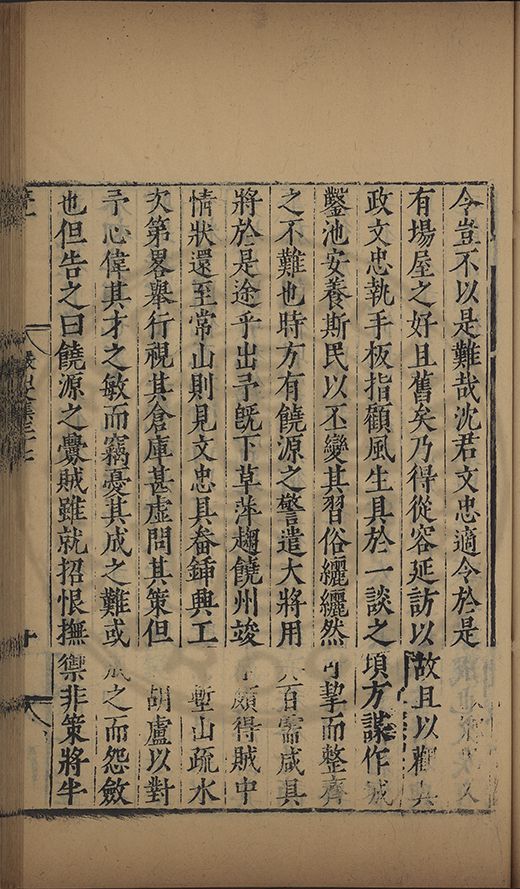 今豈不以是難哉沈君文忠適令於是
有場屋之好且舊矣乃得從容延訪以故且以觀其
政文忠執手板指顧風生具於一談之頃方謀作城
鑿池安養斯民以丕變其習俗纚纚然可挈而整齊
之不難也時方有饒源之警遣大將用百需咸具
將於是途乎出予既下草萍趨饒州竣頗得賊中
情狀還至常山則見文忠具畚鍤興工塹山疏水
次第畧舉行視其倉庫甚虛問其策但胡盧以對
予心偉其才之敏而竊憂其成之難或成之而怨斂
也但告之曰饒源之釁賊雖就招恨撫禦非策將牛
十